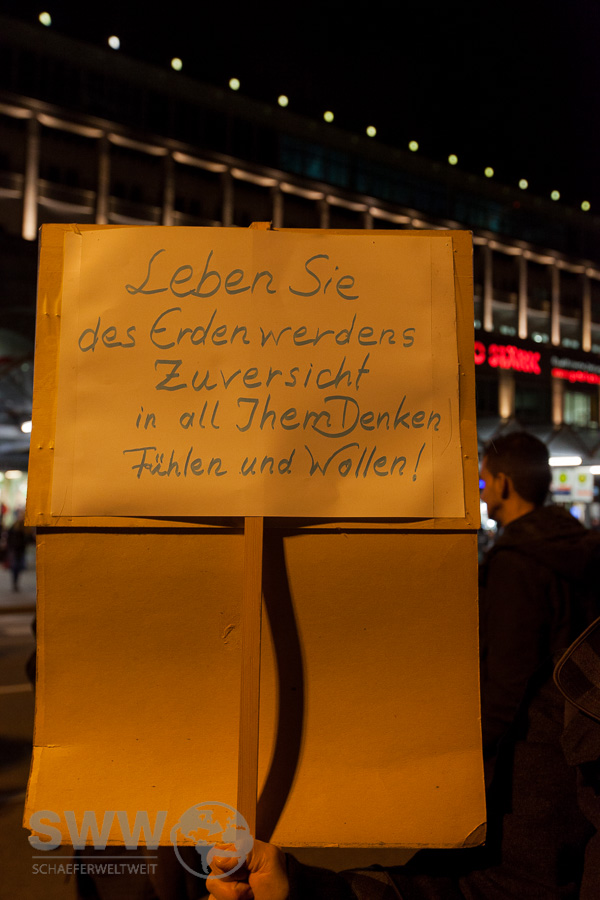 Leben Sie
des Erdenwerdens
Zuversicht
in all Ihem Denken
Fühlen und Wollen!
SWW
SCHAEFERWELTWEIT